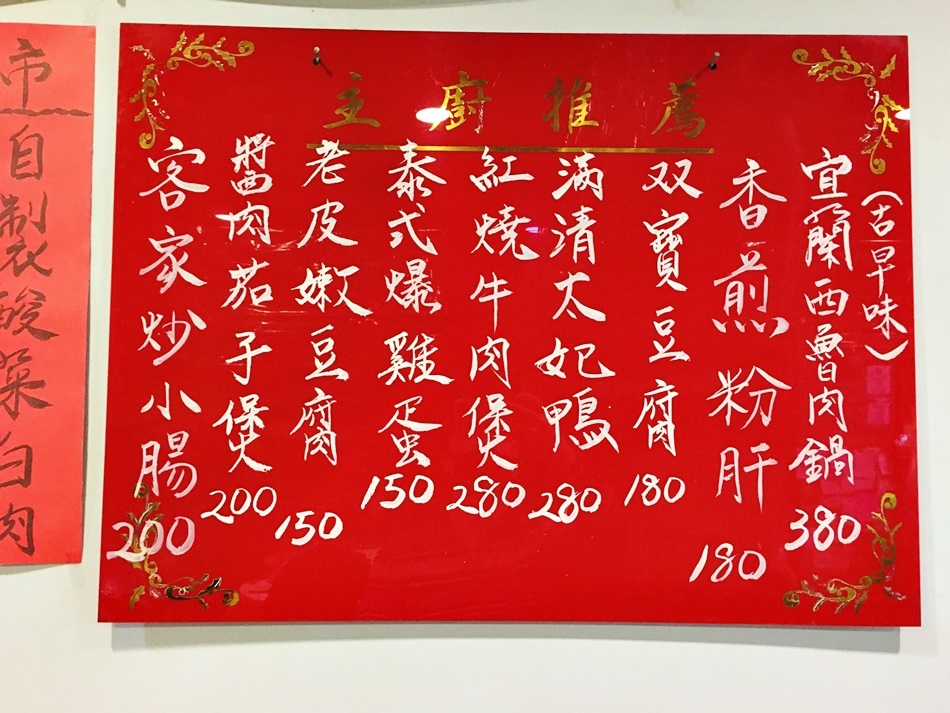 主廚推薦
(古早味)
宜蘭西魯肉鍋 380
香煎粉肝 180
双寶豆腐 180
滿清太妃鴨 280
紅燒牛肉煲 280
泰式爆雞蛋 150
老皮嫩豆腐 150
醬肉茄子煲 200
客家炒小腸 200
市
自製酸菜白肉